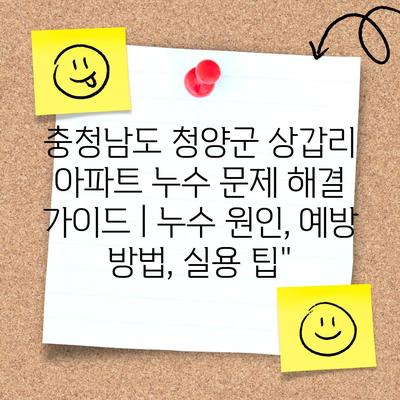 충청남도 청양군 상갑리
아파트 누수 문제 해결
가이드 | 누수 원인, 예방
방법, 실용 팁"